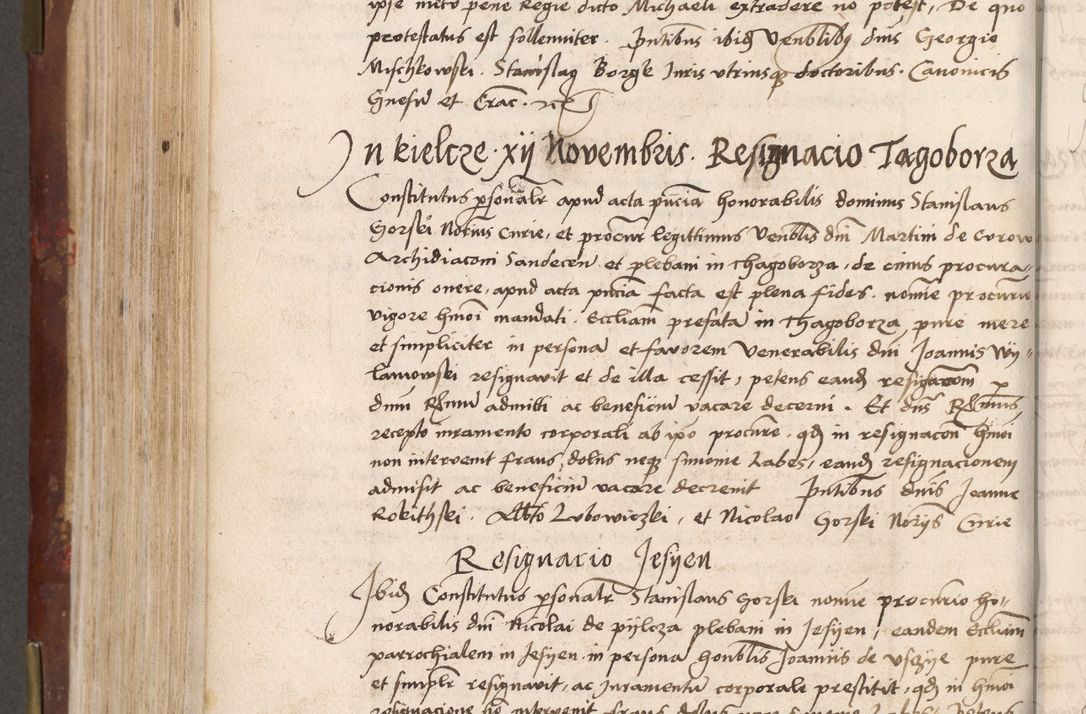 ipse metu pene Regie dicto Michaeli extradere no potest, De quo
protestatus est sollenniter. Pntibus ibid Venblibq dnis Georgio
Mischkowski. Stanislaq Borgk Iuris vtriusq doctoribus. Canonicis
Gnesn et Crac.
In kielcze xij Novembris. Resignacio Tagoborza
Constitutus psonalr apud acta pncia honorabilis dominus Stanislaus
Gorski Notius Curie, et procur legittimus Venblis dni Martini de Curow
Archidiaconi Sandecen et plebani in Thagoborza, de cuius procura-
cionis onere, apud acta pncia facta est plena fides. nomie procurio
vigore hmoi mandati. Eccliam prefata in Thagoborza, pure mere
et simpliciter in persona et favorem Venerabilis dni Joannis Wij-
lamowski resignavit et de illa cessit, petens eand resignacom p
dnm Rendum admitti ac beneficiu vacare decerni. Et dns Rendmus
recepto iuramento corporali ab ipo procure, qd in resignacon hmoi
non intervenit fraus, dolus neqz simonie Labes, eand resignacionem
admisit ac beneficiu vacare decrevit Pntibus dnis Joanne
Rokithski. Albto Lubowiczki, et Nicolao Gorski Norijs Curie
Resignacio Jesijen
Ibid Constitutus psonalr Stanislaus Gorski nomie procurio ho-
norabilis dni Nicolai de pijlcza plebani in Jesijen, eandem Eccliam
parrochialem in Jesijen in persona honblis Joannis de Vsczije pure
et simplr resignavit, ac Iuramentu corporale prestitit, qd in hmoi
resignacione no intervenit fraus dolus